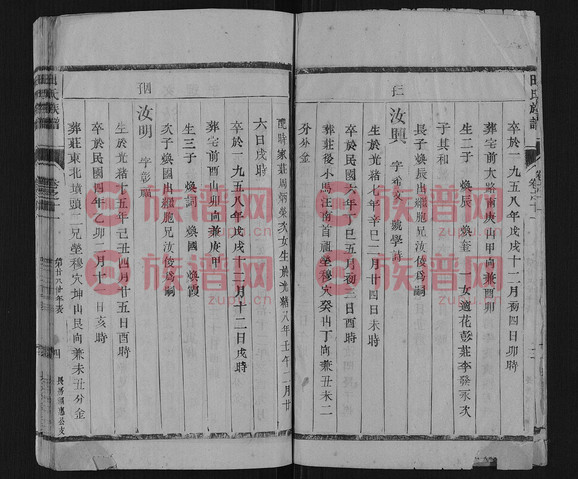 田氏族譜
卷之十
三
卒於一九五八年戊戌十二月初四日卯時
葬宅前大路南庚山甲向兼酉卯
生二子 煥辰 煥奎 一女適花彭莊李發永次
子其和
長子煥辰出繼胞兄汝俊為嗣
汝興 字希文 號學詩
生於光緒七年辛巳二月廿四日未時
卒於民國六年丁巳五月初三日酉時
葬莊後小馬汪南首祖塋穆穴癸山丁向兼丑未二
分分金
配時家莊周炳榮次女生於光緒八年壬午二月廿
六日戌時
卒於一九五八年戊戌十二月十二日戌時
葬宅前酉山卯向兼庚甲
生三子 煥詞 煥國 煥霞
次子煥國出繼胞兄汝俊為嗣
汝明 字彰
生於光緒十五年己丑四月廿五日酉時
卒於民國四年乙卯二月十日亥時
葬莊東北墳頭二兄塋穆穴坤山艮向兼未丑分金
田氏族譜
卷之十
第廿八世年表
四
長房 惠公支
族谱网
zupu.cn